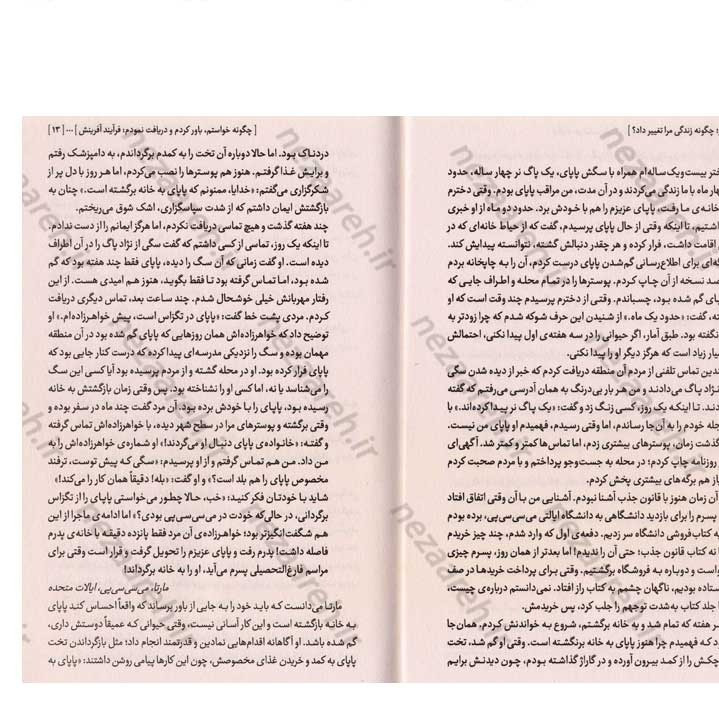 ؛ چگونه زندگی مرا تغییر داد؟ ]
ختر بیست‌ویک‌ساله‌ام همراه با سگش پاپای، یک پاگ نر چهار ساله، حدود
هار ماه با ما زندگی می‌کردند و در آن مدت، من مراقب پاپای بودم. وقتی دخترم
خانه‌ی ما رفت، پاپای عزیزم را هم با خودش برد. حدود دو ماه از او خبری
اشتیم، تا اینکه وقتی از حال پاپای پرسیدم، گفت که از حیاط خانه‌ای که در
اقامت داشت، فرار کرده و هر چقدر دنبالش گشته، نتوانسته پیدایش کند.
گه‌ای برای اطلاع‌رسانی گم‌شدن پاپای درست کردم، آن را به چاپخانه بردم
صد نسخه از آن چاپ کردم. پوسترها را در تمام محله و اطراف جایی که
پای گم شده بود، چسباندم. وقتی از دخترم پرسیدم چند وقت است که او
ته، گفت: «حدود یک ماه.» از شنیدن این حرف شوکه شدم که چرا زودتر به
نگفته بود. طبق آمار، اگر حیوانی را در سه هفته‌ی اول پیدا نکنی، احتمالش
یار زیاد است که هرگز دیگر او را پیدا نکنی.
ندین تماس تلفنی از مردم آن منطقه دریافت کردم که خبر از دیده شدن سگی
نژاد پاگ می‌دادند و من هر بار بی‌درنگ به همان آدرسی می‌رفتم که گفته
دند. تا اینکه یک روز، کسی زنگ زد و گفت: «یک پاگ نر پیدا کرده‌اند.» با
جله خودم را به آن‌جا رساندم، اما وقتی رسیدم، فهمیدم او پاپای من نیست.
گذشت زمان، پوسترهای بیشتری زدم، اما تماس‌ها کمتر و کمتر شد. آگهی‌ای
روزنامه چاپ کردم؛ در محله به جست‌وجو پرداختم و با مردم صحبت کردم
باز هم برگه‌های بیشتری پخش کردم.
آن زمان هنوز با قانون جذب آشنا نبودم. آشنایی من با آن وقتی اتفاق افتاد
پسرم را برای بازدید دانشگاهی به دانشگاه ایالتی می‌سی‌سی‌پی، برده بودم
به کتاب‌فروشی دانشگاه سر زدیم. دفعه‌ی اول که وارد شدم، چند چیز خریدم
ا نه کتاب قانون جذب؛ حتی آن را ندیدم! اما بعدتر از همان روز، پسرم چیزی
واست و دوباره به فروشگاه برگشتیم. وقتی برای پرداخت خریدها در صف
ستاده بودیم، ناگهان چشمم به کتاب راز افتاد. نمی‌دانستم درباره‌ی چیست،
ا جلد کتاب به‌شدت توجهم را جلب کرد، پس خریدمش.
ر هفته که تمام شد و به خانه برگشتم، شروع به خواندنش کردم. همان‌جا
ود که فهمیدم چرا هنوز پاپای به خانه برنگشته است. وقتی او گم شد، تخت
چکش را از کمد بیرون آورده و در گاراژ گذاشته بودم، چون دیدنش برایم
[ چگونه خواستم، باور کردم و دریافت نمودم؛ فرآیند آفرینش ] ... [ ۱۳ ]
دردناک بود. اما حالا دوباره آن تخت را به کمدم برگرداندم، به دامپزشک رفتم
و برایش غذا گرفتم. هنوز هم پوسترها را نصب می‌کردم، اما هر روز با دل پر از
شکرگزاری می‌گفتم: «خدایا، ممنونم که پاپای به خانه برگشته است.» چنان به
بازگشتش ایمان داشتم که از شدت سپاسگزاری، اشک شوق می‌ریختم.
چند هفته گذشت و هیچ تماسی دریافت نکردم، اما هرگز ایمانم را از دست ندادم.
تا اینکه یک روز، تماس از کسی داشتم که گفت سگی از نژاد پاگ را در آن اطراف
دیده است. او گفت زمانی که آن سگ را دیده، پاپای فقط چند هفته بود که گم
شده بود، اما تماس گرفته بود تا فقط بگوید، هنوز هم امیدی هست. از این
رفتار مهربانش خیلی خوشحال شدم. چند ساعت بعد، تماس دیگری دریافت
کردم. مردی پشت خط گفت: «پاپای در تگزاس است، پیش خواهرزاده‌ام.» او
توضیح داد که خواهرزاده‌اش همان روزهایی که پاپای گم شده بود در آن منطقه
مهمان بوده و سگ را نزدیکی مدرسه‌ای پیدا کرده که درست کنار جایی بود که
پاپای فرار کرده بود. او در محله گشته و از مردم پرسیده بود آیا کسی این سگ
را می‌شناسد یا نه، اما کسی او را نشناخته بود. پس وقتی زمان بازگشتش به خانه
رسیده بود، پاپای را با خودش برده بود. آن مرد گفت چند ماه در سفر بوده و
وقتی برگشته و پوسترهای مرا در سطح شهر دیده، با خواهرزاده‌اش تماس گرفته
و گفته: «خانواده‌ی پاپای دنبال او می‌گردند!» او شماره‌ی خواهرزاده‌اش را به
من داد. من هم تماس گرفتم و از او پرسیدم: «سگی که پیش توست، ترفند
مخصوص پاپای را هم بلد است؟» و او گفت: «بله! دقیقاً همان کار را می‌کند!»
شاید با خودتان فکر کنید: «خب، حالا چطور می‌خواستی پاپای را از تگزاس
برگردانی، در حالی‌که خودت در می‌سی‌سی‌پی بودی؟» اما ادامه‌ی ماجرا از این
هم شگفت‌انگیزتر بود؛ خواهرزاده‌ی آن مرد فقط پانزده دقیقه با خانه‌ی پدرم
فاصله داشت! پدرم رفت و پاپای عزیزم را تحویل گرفت و قرار است وقتی برای
مراسم فارغ‌التحصیلی پسرم می‌آید، او را به خانه برگرداند!
مارتا، می‌سی‌سی‌پی، ایالات متحده
مارتا می‌دانست که باید خود را به جایی از باور برساند که واقعاً احساس کند پاپای
به خانه بازگشته است و این کار آسانی نیست، وقتی حیوانی که عمیقاً دوستش داری،
گم شده باشد. او آگاهانه اقدام‌هایی نمادین و قدرتمند انجام داد؛ مثل بازگرداندن تخت
پاپای به کمد و خریدن غذای مخصوصش، چون این کارها پیامی روشن داشتند: «پاپای به
nezareh.ir